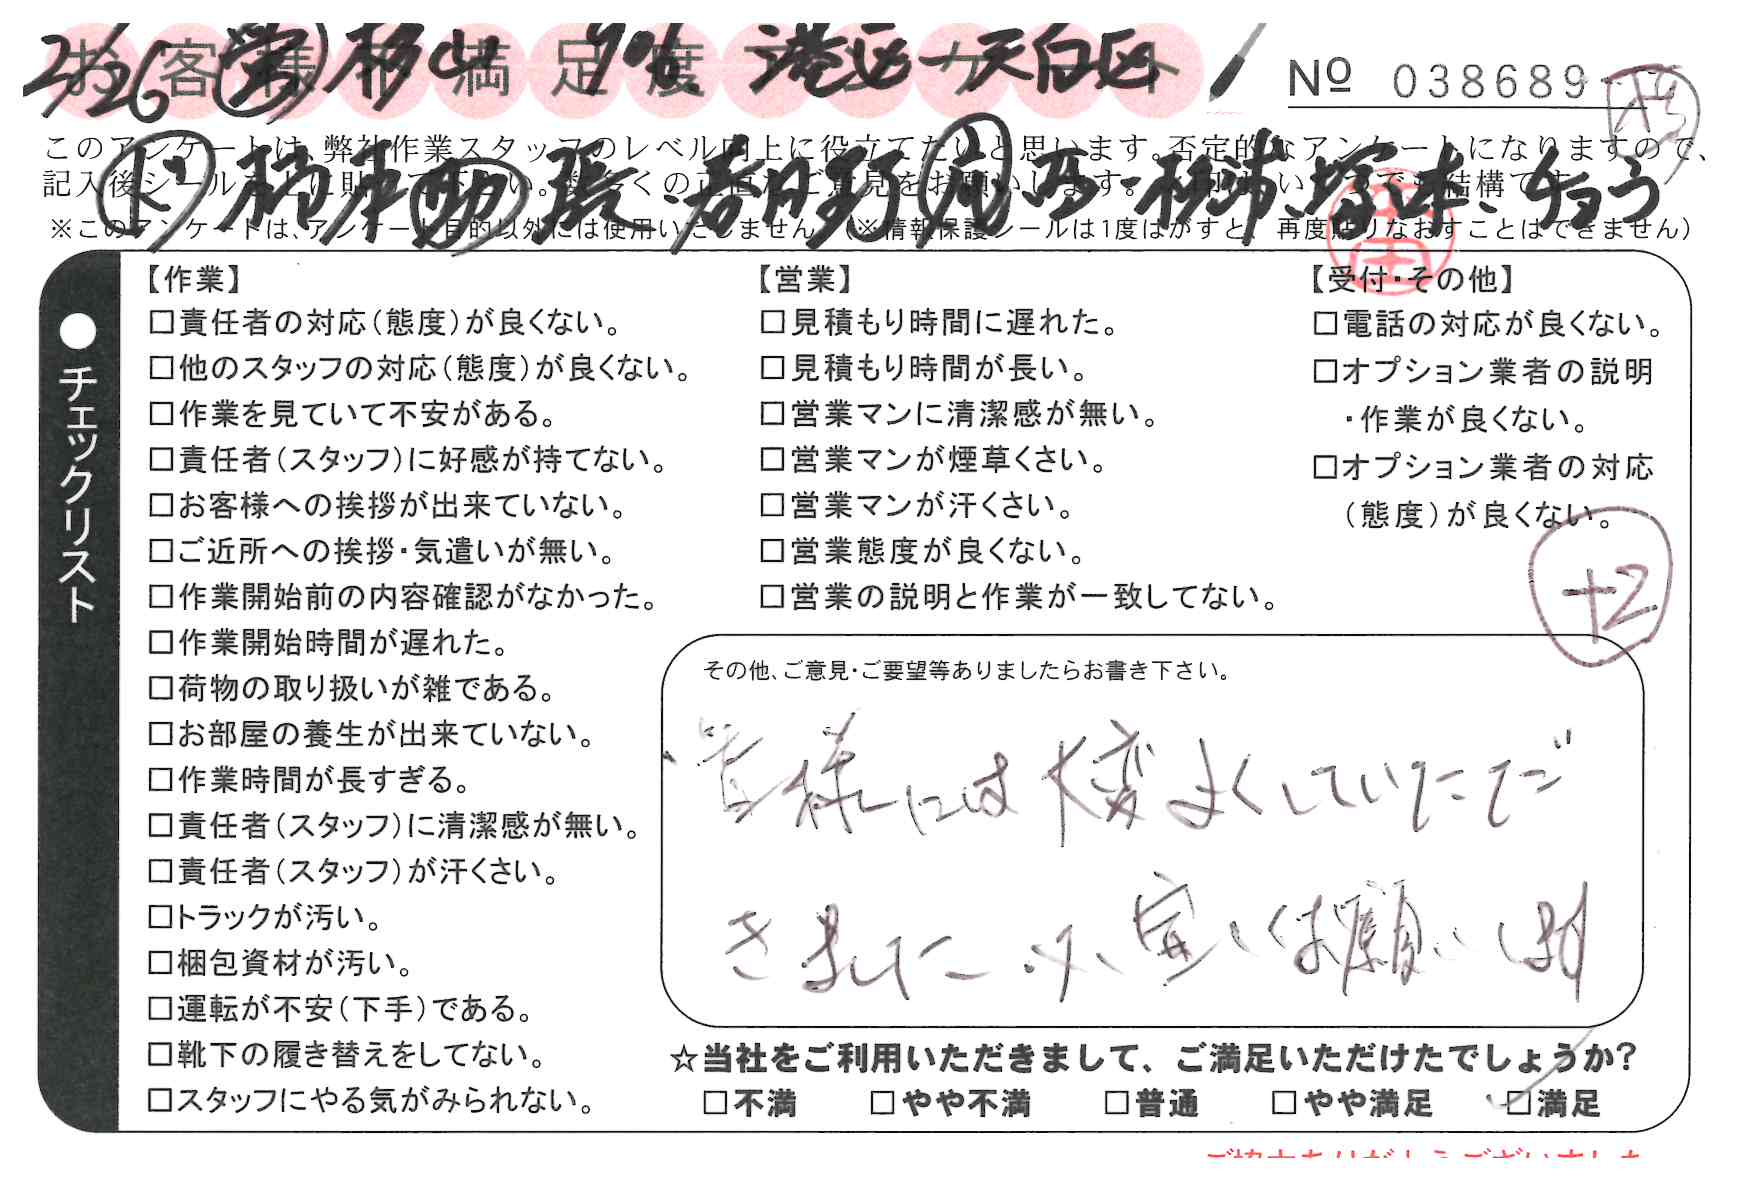 お客様満足度アンケート
2/26 港区-天白区
№ 038689
このアンケートは、弊社作業スタッフのレベル向上に役立てたいと思います。否定的なアンケートになりますので、
記入後シールを上に貼って下さい。数多くの正直なご意見をお願いします。
※このアンケートは、アンケート目的以外には使用いたしません。(※情報保護シールは1度はがすと、再度貼りなおすことはできません)
●チェックリスト
【作業】
□責任者の対応(態度)が良くない。
□他のスタッフの対応(態度)が良くない。
□作業を見ていて不安がある。
□責任者(スタッフ)に好感が持てない。
□お客様への挨拶が出来ていない。
□ご近所への挨拶・気遣いが無い。
□作業開始前の内容確認がなかった。
□作業開始時間が遅れた。
□荷物の取り扱いが雑である。
□お部屋の養生が出来ていない。
□作業時間が長すぎる。
□責任者(スタッフ)に清潔感が無い。
□責任者(スタッフ)が汗くさい。
□トラックが汚い。
□梱包資材が汚い。
□運転が不安(下手)である。
□靴下の履き替えをしてない。
□スタッフにやる気がみられない。
【営業】
□見積もり時間に遅れた。
□見積もり時間が長い。
□営業マンに清潔感が無い。
□営業マンが煙草くさい。
□営業マンが汗くさい。
□営業態度が良くない。
□営業の説明と作業が一致してない。
【受付・その他】
□電話の対応が良くない。
□オプション業者の説明
・作業が良くない。
□オプション業者の対応
(態度)が良くない。
+2
その他、ご意見・ご要望等ありましたらお書き下さい。
皆様には大変よくしていただ
きました
宜しくお願いします
☆当社をご利用いただきまして、ご満足いただけたでしょうか?
□不満 □やや不満 □普通 □やや満足 □満足
ご協力ありがとうございました